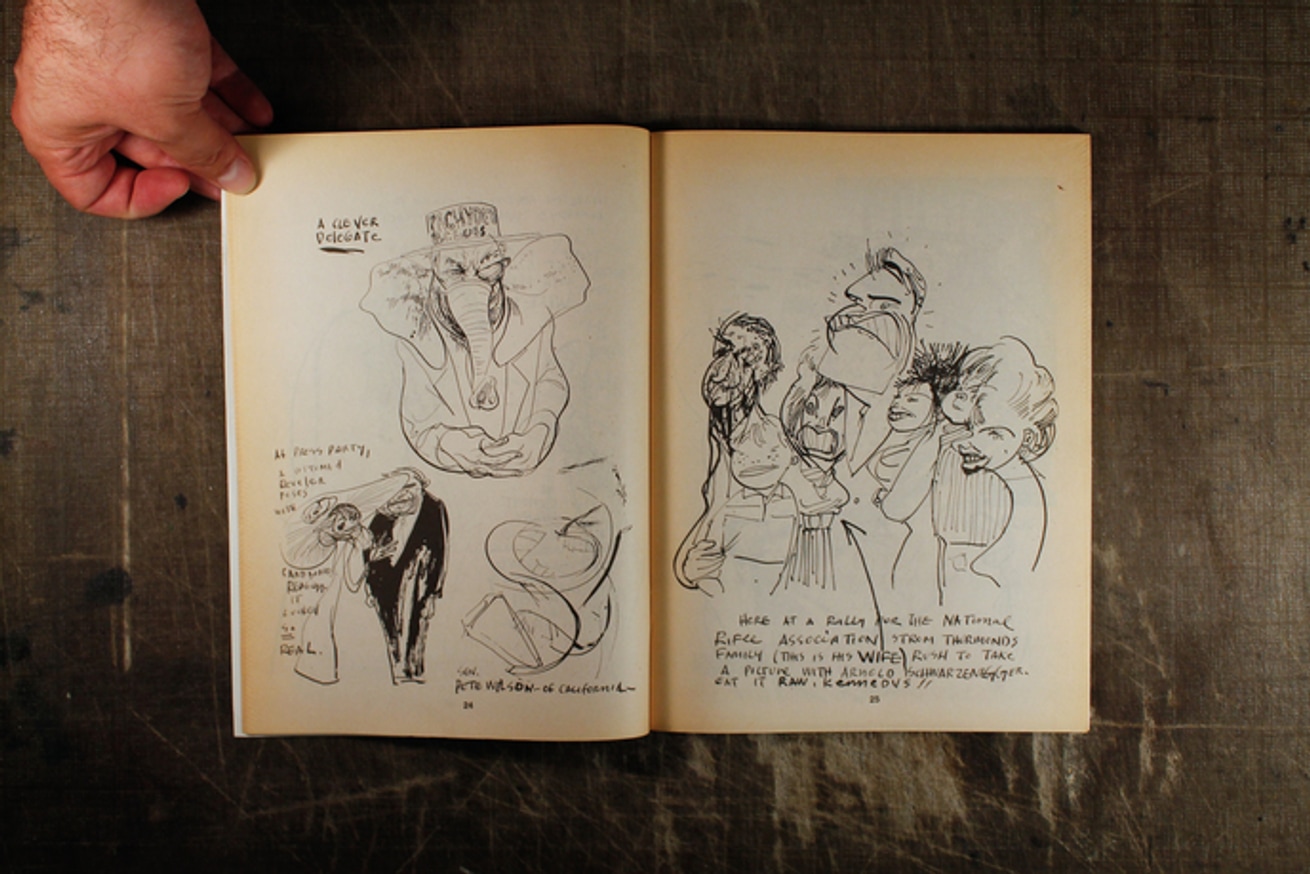 A CLEVER
DELEGATE
AT PRESS PARTY,
A
REVELER
POSES
WITH
CARDBOARD
REAGAN,
IT
LOOKED
SO
REAL.
SEN.
PETE WILSON - OF CALIFORNIA
24
HERE AT A RALLY FOR THE NATIONAL
RIFLE ASSOCIATION STROM THURMONDS
FAMILY (THIS IS HIS WIFE) RUSH TO TAKE
A PICTURE WITH ARNOLD SCHWARZENEGGER.
EAT IT RAW, KENNEDYS !!
25